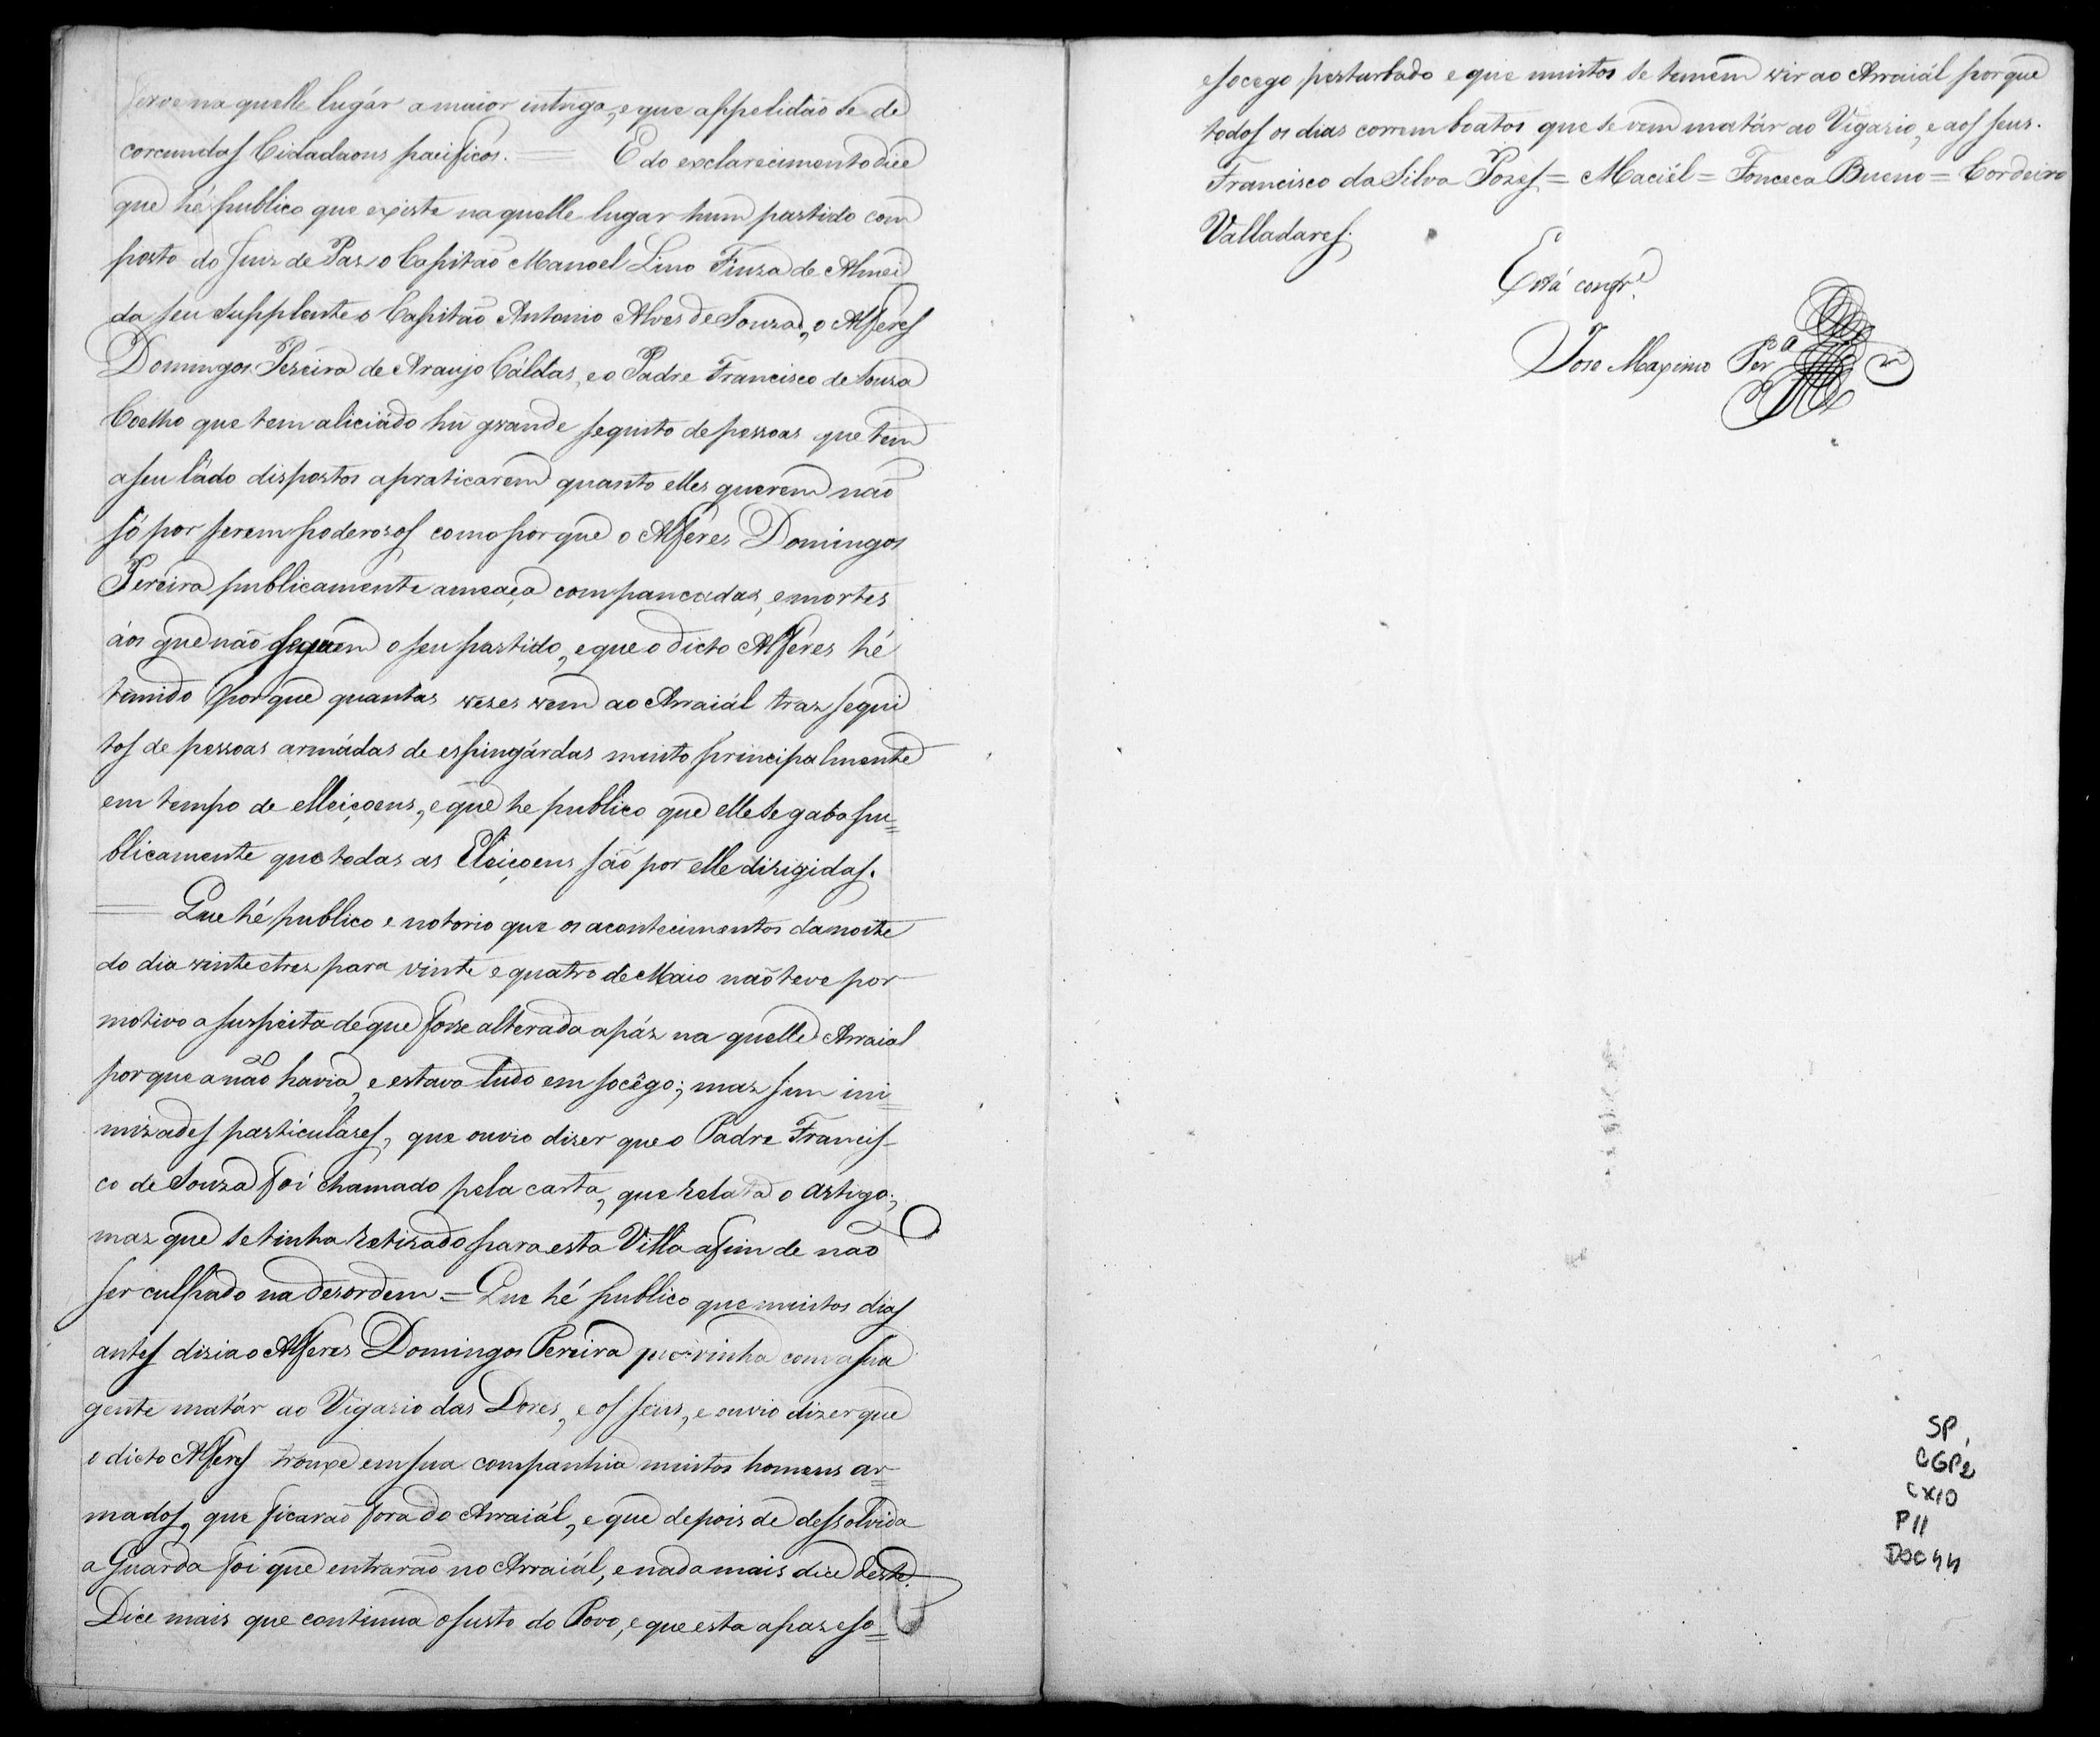 ferve na quelle lugár a maior intriga, e que appelidão se de
corcundas Cidadaons pacificos. = E do exclarecimento dice
que hé publico que existe na quelle lugar hum partido com
posto do Juiz de Paz o Capitão Manoel Lino Fiuza de Almei
da seu Supplente o Capitão Antonio Alves de Souza, o Alferes
Domingos Pereira de Araujo Cáldas, e o Padre Francisco de Souza
Coelho que tem aliciádo hũ grande sequito de pessoas que tem
a seu ládo dispostos a praticarem quanto elles querem não
só por serem poderosos como por que o Alferes Domingos
Pereira publicamente ameaça com pancadas, e mortes
áos que não seguem o seu partido, e que o dicto Alferes hé
temido por que quantas vezes vem ao Arraiál traz sequi
tos de pessoas armádas de espingárdas muito principalmente
em tempo de elleiçoens, e que he publico que elle se gaba pu=
blicamente que todas as Eleiçoens são por elle dirigidas.
= Que hé publico e notorio que os acontecimentos da noite
do dia vinte e trez para vinte e quatro de Maio não teve por
motivo a suspeita de que fosse alterada a páz na quelle Arraial
por que a não havia, e estava tudo em socêgo; maz sim ini=
mizades particuláres, que ouvio dizer que o Padre Francis-
co de Souza foi chamado pela carta, que relata o artigo;
maz que se tinha retirado para esta Villa afim de não
ser culpado na desordem = Que hé publico que muitos dias
antes dizia o Alferes Domingos Pereira que vinha com a sua
gente matár ao Vigario das Dores, e os seus, e ouvio dizer que
o dicto Alferes trouxe em sua companhia muitos homens ar=
mados, que ficarão fora do Arraiál, e que depois de dessolvida
a Guarda foi que entrarão no Arraiál, e nada mais dice deste.
Dice mais que continua o susto do Povo, e que esta a paz e so=
e socego perturbado e que muitos se temem vir ao Arraiál por que
todos os dias correm boatos que se vem matár ao Vigario, e aos seus.
Francisco da Silva Pozes = Maciél = Fonceca Bueno = Cordeiro
Valladares.
Está confr.e
Jose Maximo Per.a
SP,
CGP2
CX10
P11
DOC44